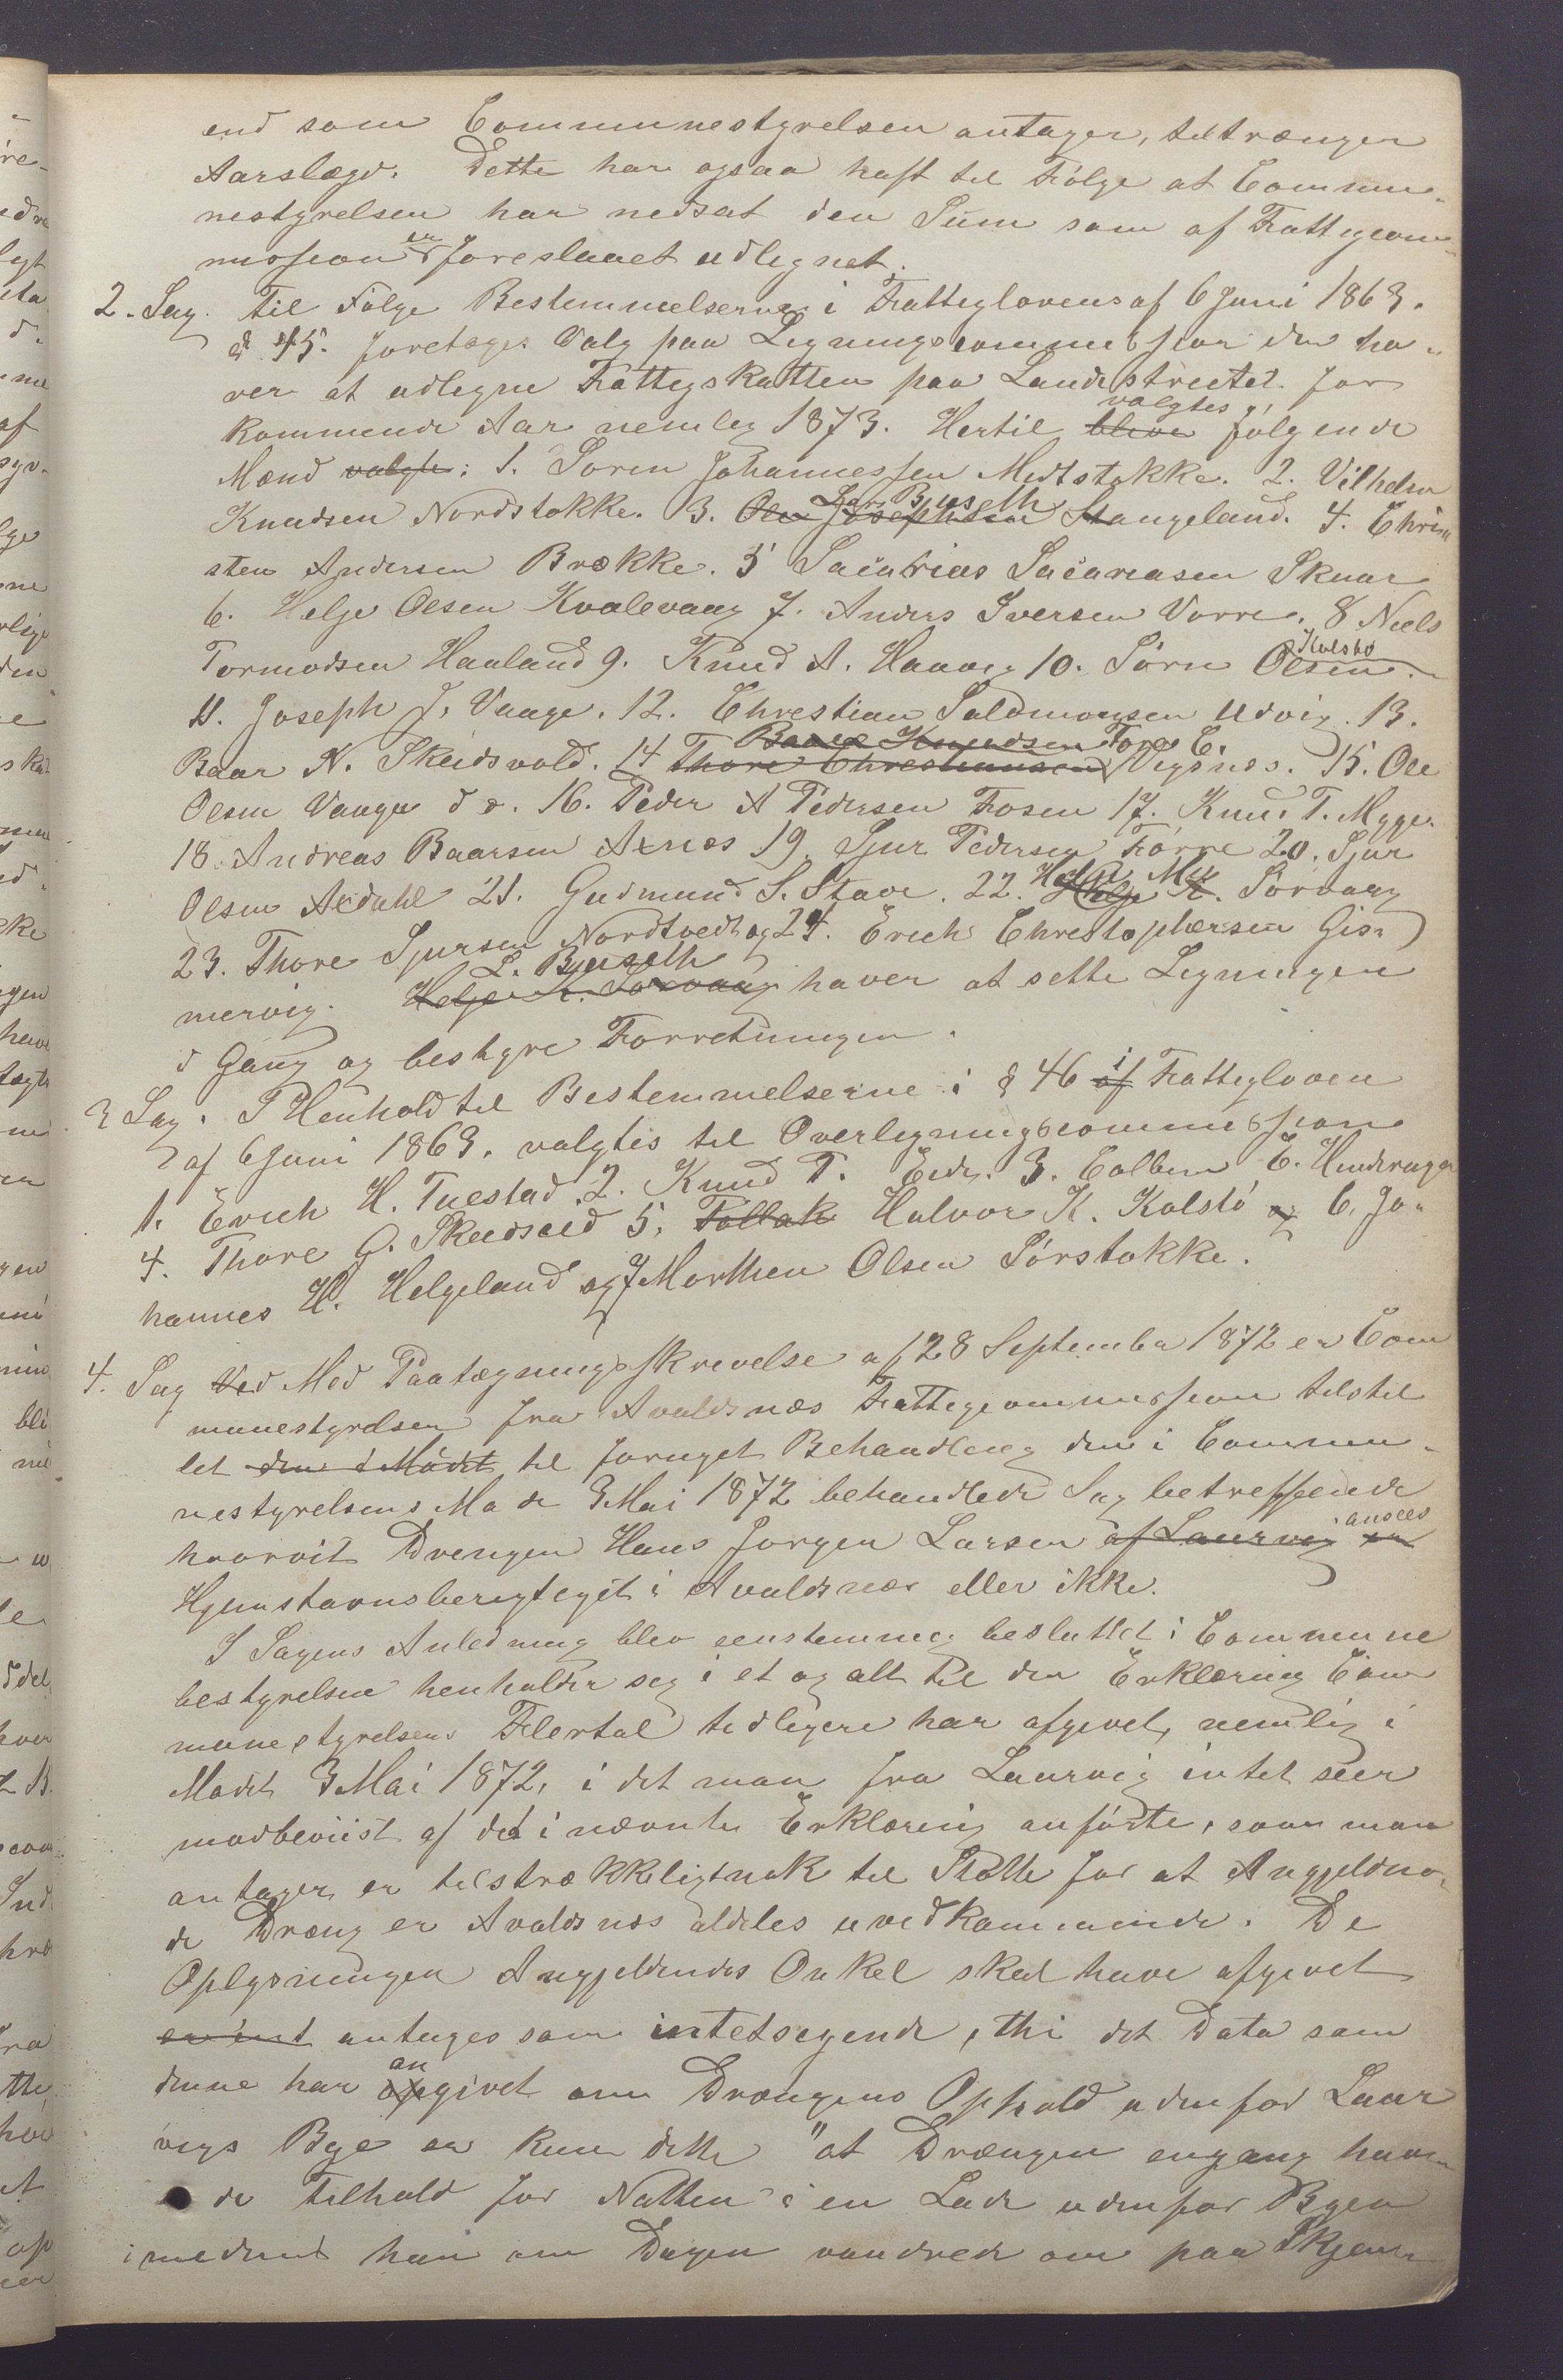 end som Communestyrelsen antager, tiltrænger
Aarslægd. Dette har ogsaa haft til Følge at Commu-
nestyrelsen har nedsat den Sum som af Fattigcom-
mission er foreslaaet udlignet.
2. Sag. Til Følge Bestemmelserne i Fattiglovens af 6 Juni 1863.
§ 45. foretoges Valg paa Ligningscommission der ha-
ver at udligne Fattigskatten paa Landdistrictet for
kommende Aar nemlig 1873. Hertil bleve valgtes følgende
Mænd valgte: 1. Søren Johannessen Medtstokke. 2. Vilhelm
Knudsen Nordstokke. 3. Ole Josephsen Lars Bjuseth Stangeland. 4. Chri-
sten Andersen Brække. 5 Sacarias Sacariasen Skaar
6. Helge Olsen Kvalevaag 7. Anders Iversen Vorre. 8 Niels
Tormodsen Haaland 9. Knud A. Haavig 10. Sørn Olsen Kolstø
11. Joseph J. Vaage. 12. Christian Saldmonsen Udvig. 13.
Baar N. Skeidsvold. 14 Thore Christiansen Baard Knudsen Tore C. Vigsnes. 15. Ole
Olsen Vaage d. 16. Peder A Pedersen Fosen 17. Knud T. Myge.
18. Andreas Baarsen Axnes 19. Sjur Pedersen Førre 20. Sjur
Olsen Ardahl 21. Gudmund S. Stave. 22. Helge K. Sørvaag
23. Thore Sjursen Nordtvedt og 24. Erich Christophersen Gis-
mervig. Helge K. Sørvaag L. Bjuseth haver at sette Ligningen
i Gang og bestyre Forretningen.
3 Sag. I Henhold til Bestemmelserne i § 46 af i Fattigloven
af 6 Juni 1863. valgtes til Overligningscommission
1. Erich H. Tuestad. 2. Knud T. Eide. 3. Colben E. Hinderager
4. Thore G. Skeidseid 5. Tollak Halvor K. Kolstø og 6. Jo-
hannes H. Helgeland og 7 Morthen Olsen Sørstokke.
4. Sag Ved Med Paategningsskrivelse af 28 September 1872 er Com
munestyrelsen fra Avaldsnes Fattigcommission tilstil
let den i Mødet til fornyet Behandling den i Commu-
nestyrelsens Mø de 3 Mai 1872 behandlede Sag betreffende
hvorvit Drengen Hans Jørgen Larsen af Laurvig er ansees
Hjemstavnsberigtiget i Avaldsnes eller ikke.
I Sagens Anledning blev eenstemmig besluttet: Commune
bestyrelsen henholder sig i et og alt til den Erklæring Com
munestyrelsens Flertal tidligere har afgivet, nemlig i
Mødet 3 Mai 1872, i det man fra Laurvig intet seer
modbeviist af det i nævnte Erklæring anførte, som man
antager er tilstrækkeligtnok til Støtte for at Angjelden-
de Dræng er Avaldsnes aldeles uvedkommende. De
Oplysninger Angjeldendes Onkel skal have afgivet
er int antages som intetsigende, thi det Data som
denne har opgivet an om Drængens Ophold udenfor Laur
vigs Bye er kun dette "at Drængen engang hav-
de tilhold for Natten i en Lade udenfor Byen
imedens han om Dagen vandrede om paa Skjøn-